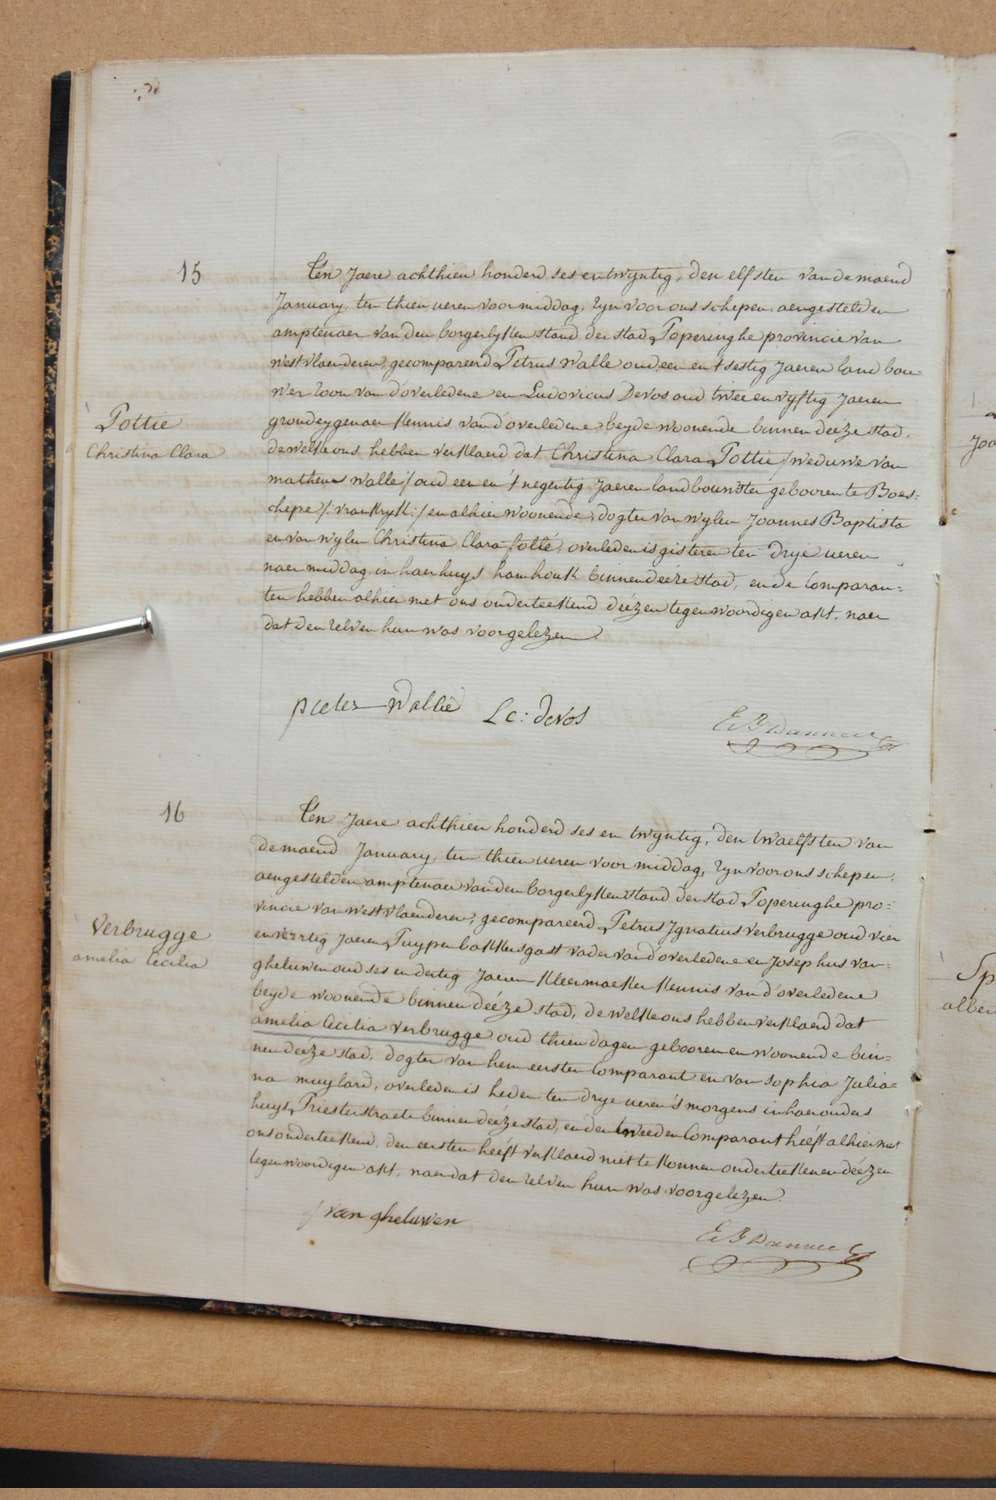 15
Ten Jaere achthien honderd ses en twyntig, den elfsten van de maend
January, ten thien ueren voormiddag, Zyn voor ons schepen, aengestelden
amptenaer van den borgerlyken stand der stad Poperinghe provincie van
westvlaenderen, gecompareerd Petrus Walle oud een en t'sestig Jaeren land bou
wer zoon van d'overledene en Ludovicus Devos oud twee en vyftig Jaeren
grondeygenaer kennis van d'overledene, beyde woonende binnen deéze stad,
de welke ons hebben verklaerd dat Christina Clara Pottie /weduwe van
matheus walle/ oud een en t'negentig Jaeren landbouwster gebooren te Boes=
chepe /:vrankryk:/ en alhier woonende, dogter van wylen Joannes Baptista
en van wylen Christina Clara Cotté, overleden is gisteren ten drye ueren
naer middag in haer huys hamhouk binnen deéze stad, en de Comparan=
ten hebben alhier met ons onderteekend deézen tegenwoordigen akt, naer
dat den zelven hun was voorgelezen
Pottie
Christina Clara
pieter Wallie Lc: devos
16
Ten Jaere achthien honderd ses en twyntig, den twaelfsten van
de maend January, ten thien ueren voor middag, Zyn voor ons schepen,
aengestelden amptenaer van den borgerlyken stand der stad Poperinghe pro=
vincie van westvlaenderen, gecompareerd Petrus Ignatius Verbrugge oud vier
en veertig Jaeren Pruypen bakkersgast vader van d'overledene en Josephus van=
gheluwen oud ses en dertig Jaeren kleermaeker kennis van d'overledene
beyde woonende binnen deéze stad, de welke ons hebben verklaerd dat
amelia Cecilia verbrugge oud thien dagen gebooren en woonende bin=
nen deéze stad, dogter van hem eersten Comparant en van Sophia Julia=
na muylard, overleden is heden ten drye ueren 's morgens in haer ouders
huys Priesterstraete binnen deéze stad, en den tweeden Comparant heéft alhier met
ons onderteekend, den eersten heéft verklaerd niet te konnen onderteekenen deézen
tegenwoordigen akt, naer dat den zelven hun was voorgelezen
Verbrugge
amelia Cecilia
j van gheluwen